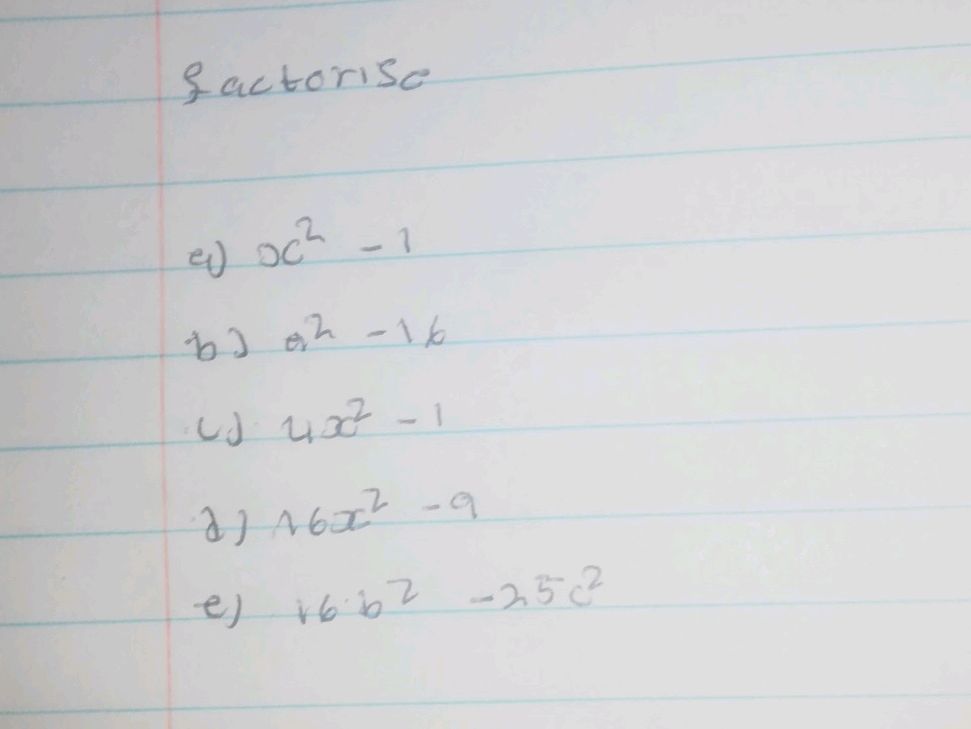 factorise
a) x² - 1
b) a² - 16
c) 4x² - 1
d) 16x² - 9
e) 16b² - 25c²